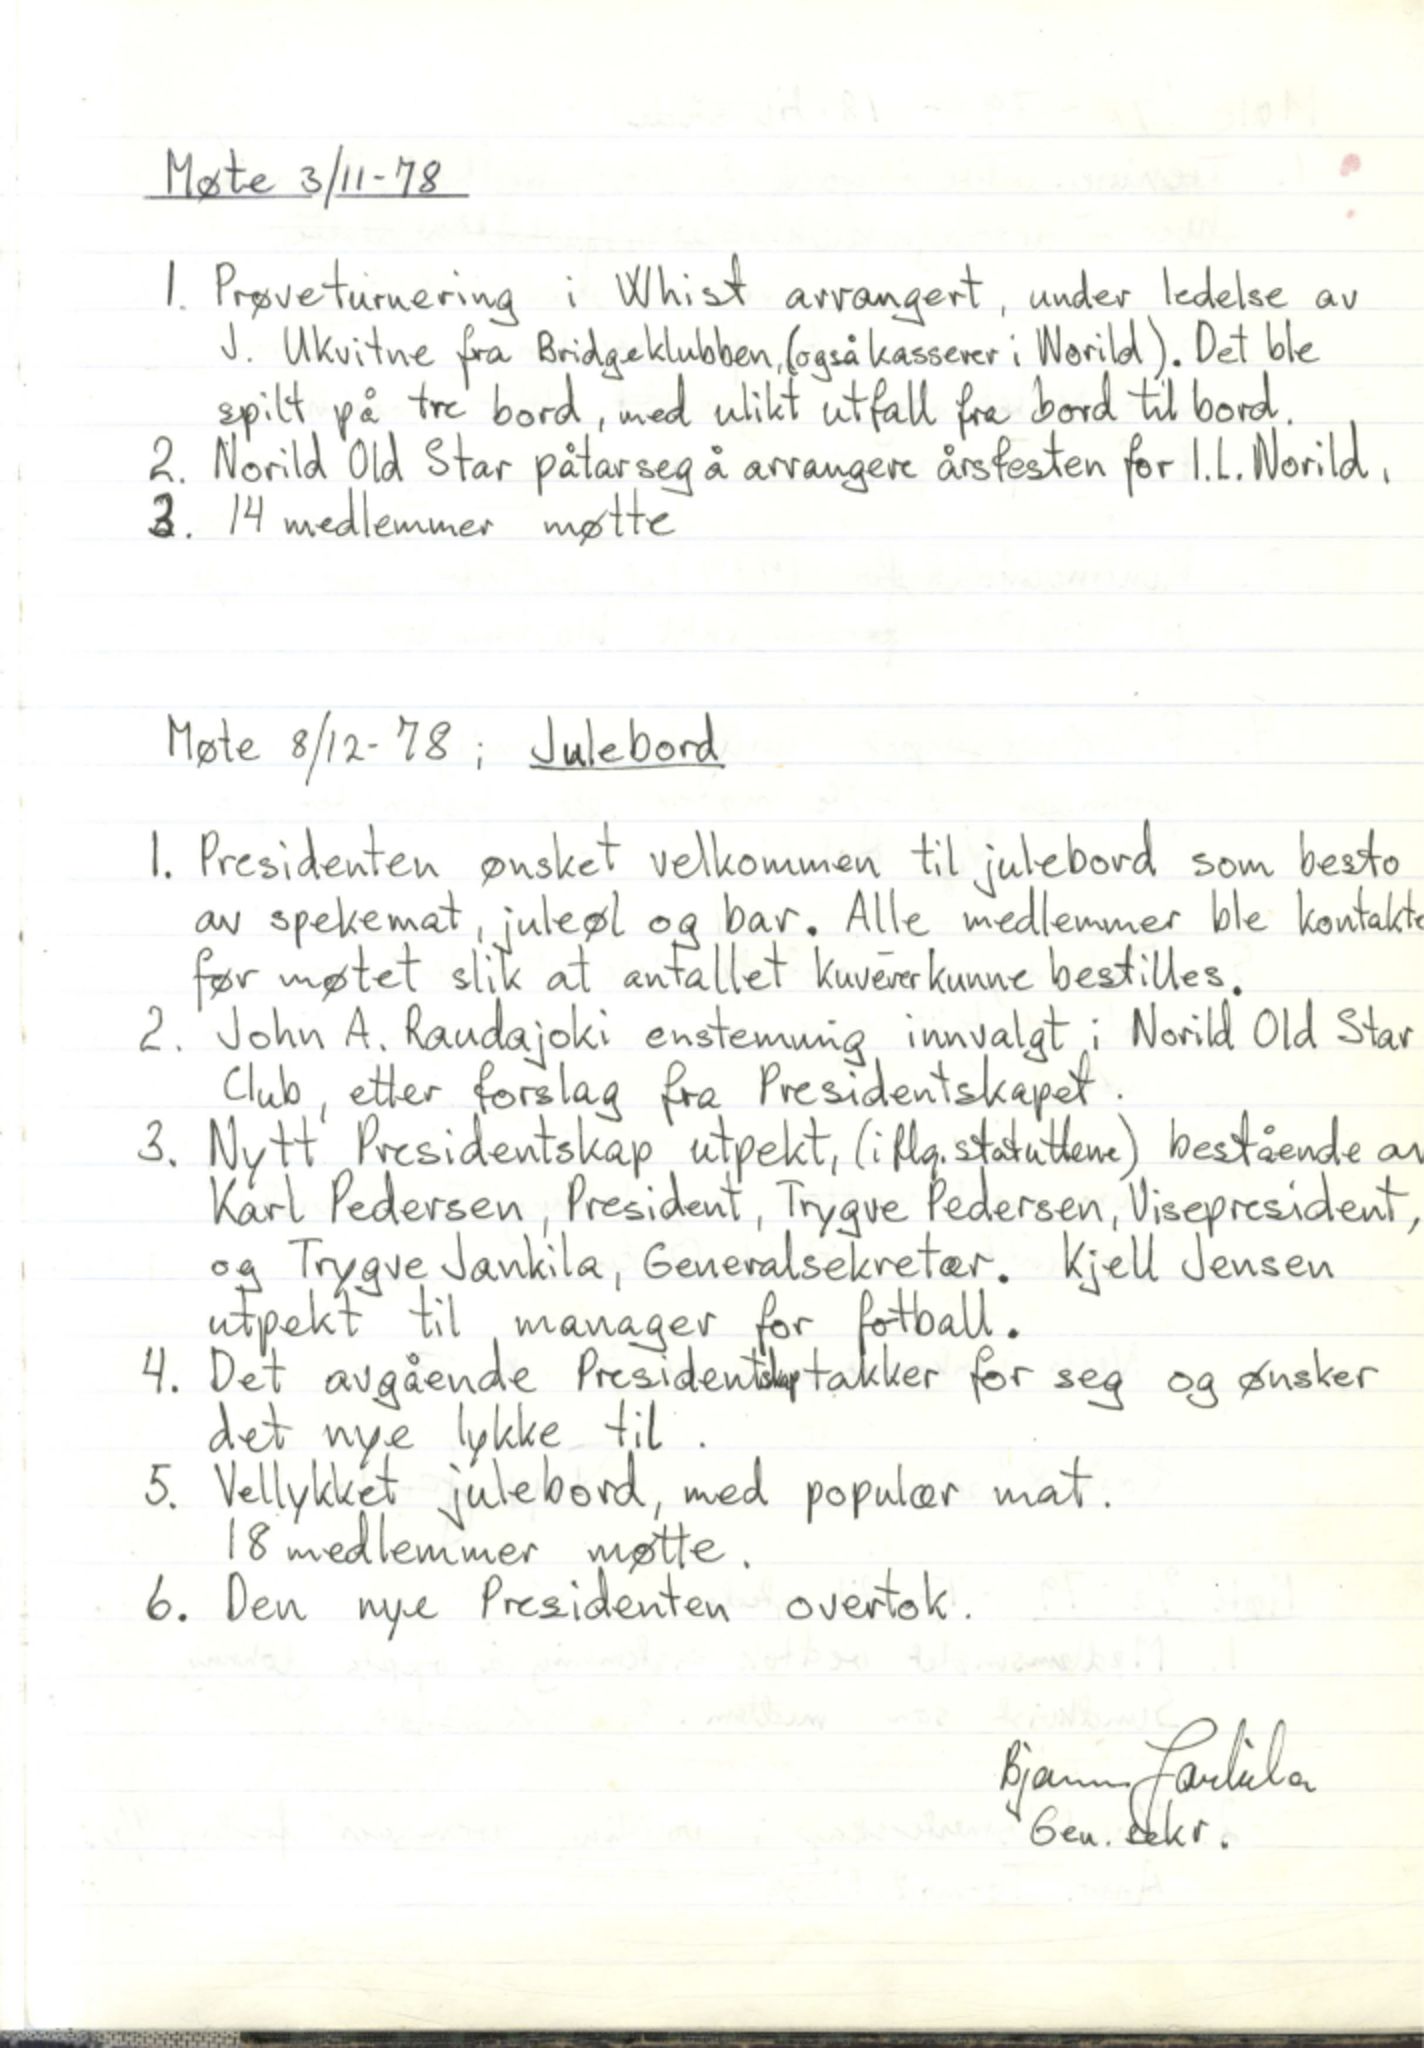 Møte 3/11-78
1. Prøveturnering i Whist arrangert, under ledelse av
J. Ukvitne fra Bridgeklubben, (også kasserer i Norild). Det ble
spilt på tre bord, med ulikt utfall fra bord til bord.
2. Norild Old Star påtar seg å arrangere årsfesten for I.L. Norild.
3. 14 medlemmer møtte
Møte 8/12-78; Julebord
1. Presidenten ønsket velkommen til julebord som besto
av spekemat, juleøl og bar. Alle medlemmer ble kontakte
før møtet slik at antallet kuvérer kunne bestilles.
2. John A. Raudajoki enstemmig innvalgt i Norild Old Star
Club, etter forslag fra Presidentskapet.
3. Nytt Presidentskap utpekt, (i flg. statuttene) bestående av
Karl Pedersen, President, Trygve Pedersen, Visepresident,
og Trygve Jankila, Generalsekretær. Kjell Jensen
utpekt til manager for fotball.
4. Det avgående Presidentskap takker for seg og ønsker
det nye lykke til.
5. Vellykket julebord, med populær mat.
18 medlemmer møtte.
6. Den nye Presidenten overtok.
Gen. sekr.